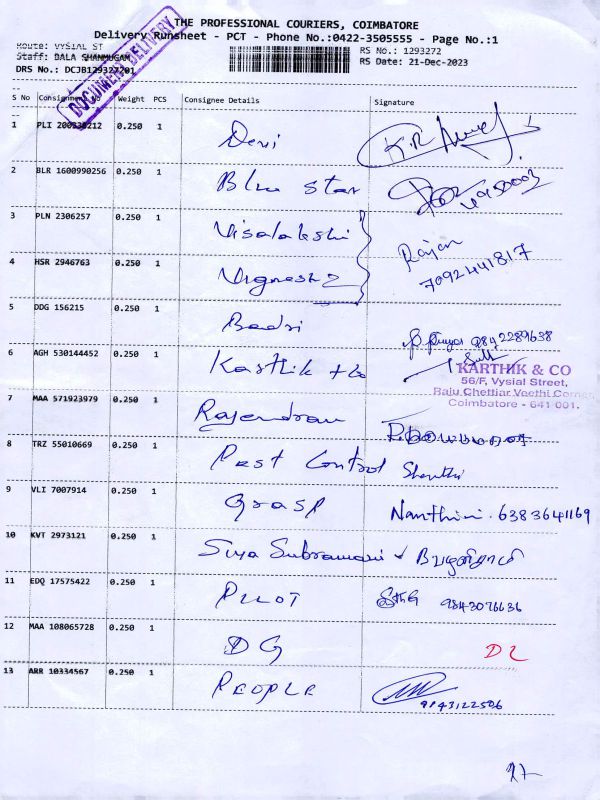 THE PROFESSIONAL COURIERS, COIMBATORE
Delivery Runsheet - PCT - Phone No.:0422-3505555 - Page No.:1
Route: VYSIAL ST RS No.: 1293272
Staff: BALA SHANMUGAM RS Date: 21-Dec-2023
DRS No.: DCJB129327201
DOCUMENT DELIVERY
S No Consignment Weight PCS Consignee Details Signature
1 PLI 200238212 0.250 1 Devi
2 BLR 1600990256 0.250 1 Blue star
3 PLN 2306257 0.250 1 Visalakshi Rajan
4 HSR 2946763 0.250 1 Vignesh 7092441817
5 DDG 156215 0.250 1 Badri 9842289638
6 AGH 530144452 0.250 1 Karthik & Co
KARTHIK & CO
56/F, Vysial Street,
Raju Chettiar Veethi Corner
Coimbatore - 641 001.
7 MAA 571923979 0.250 1 Rajendran
8 TRZ 55010669 0.250 1 Pest Control Shanthi
9 VLI 7007914 0.250 1 Grasp Nanthini. 6383641169
10 KVT 2973121 0.250 1 Siva Subramani
11 EDQ 17575422 0.250 1 PILOT 9843076636
12 MAA 108065728 0.250 1 DG
13 ARR 10334567 0.250 1 PEOPLE 9843122506